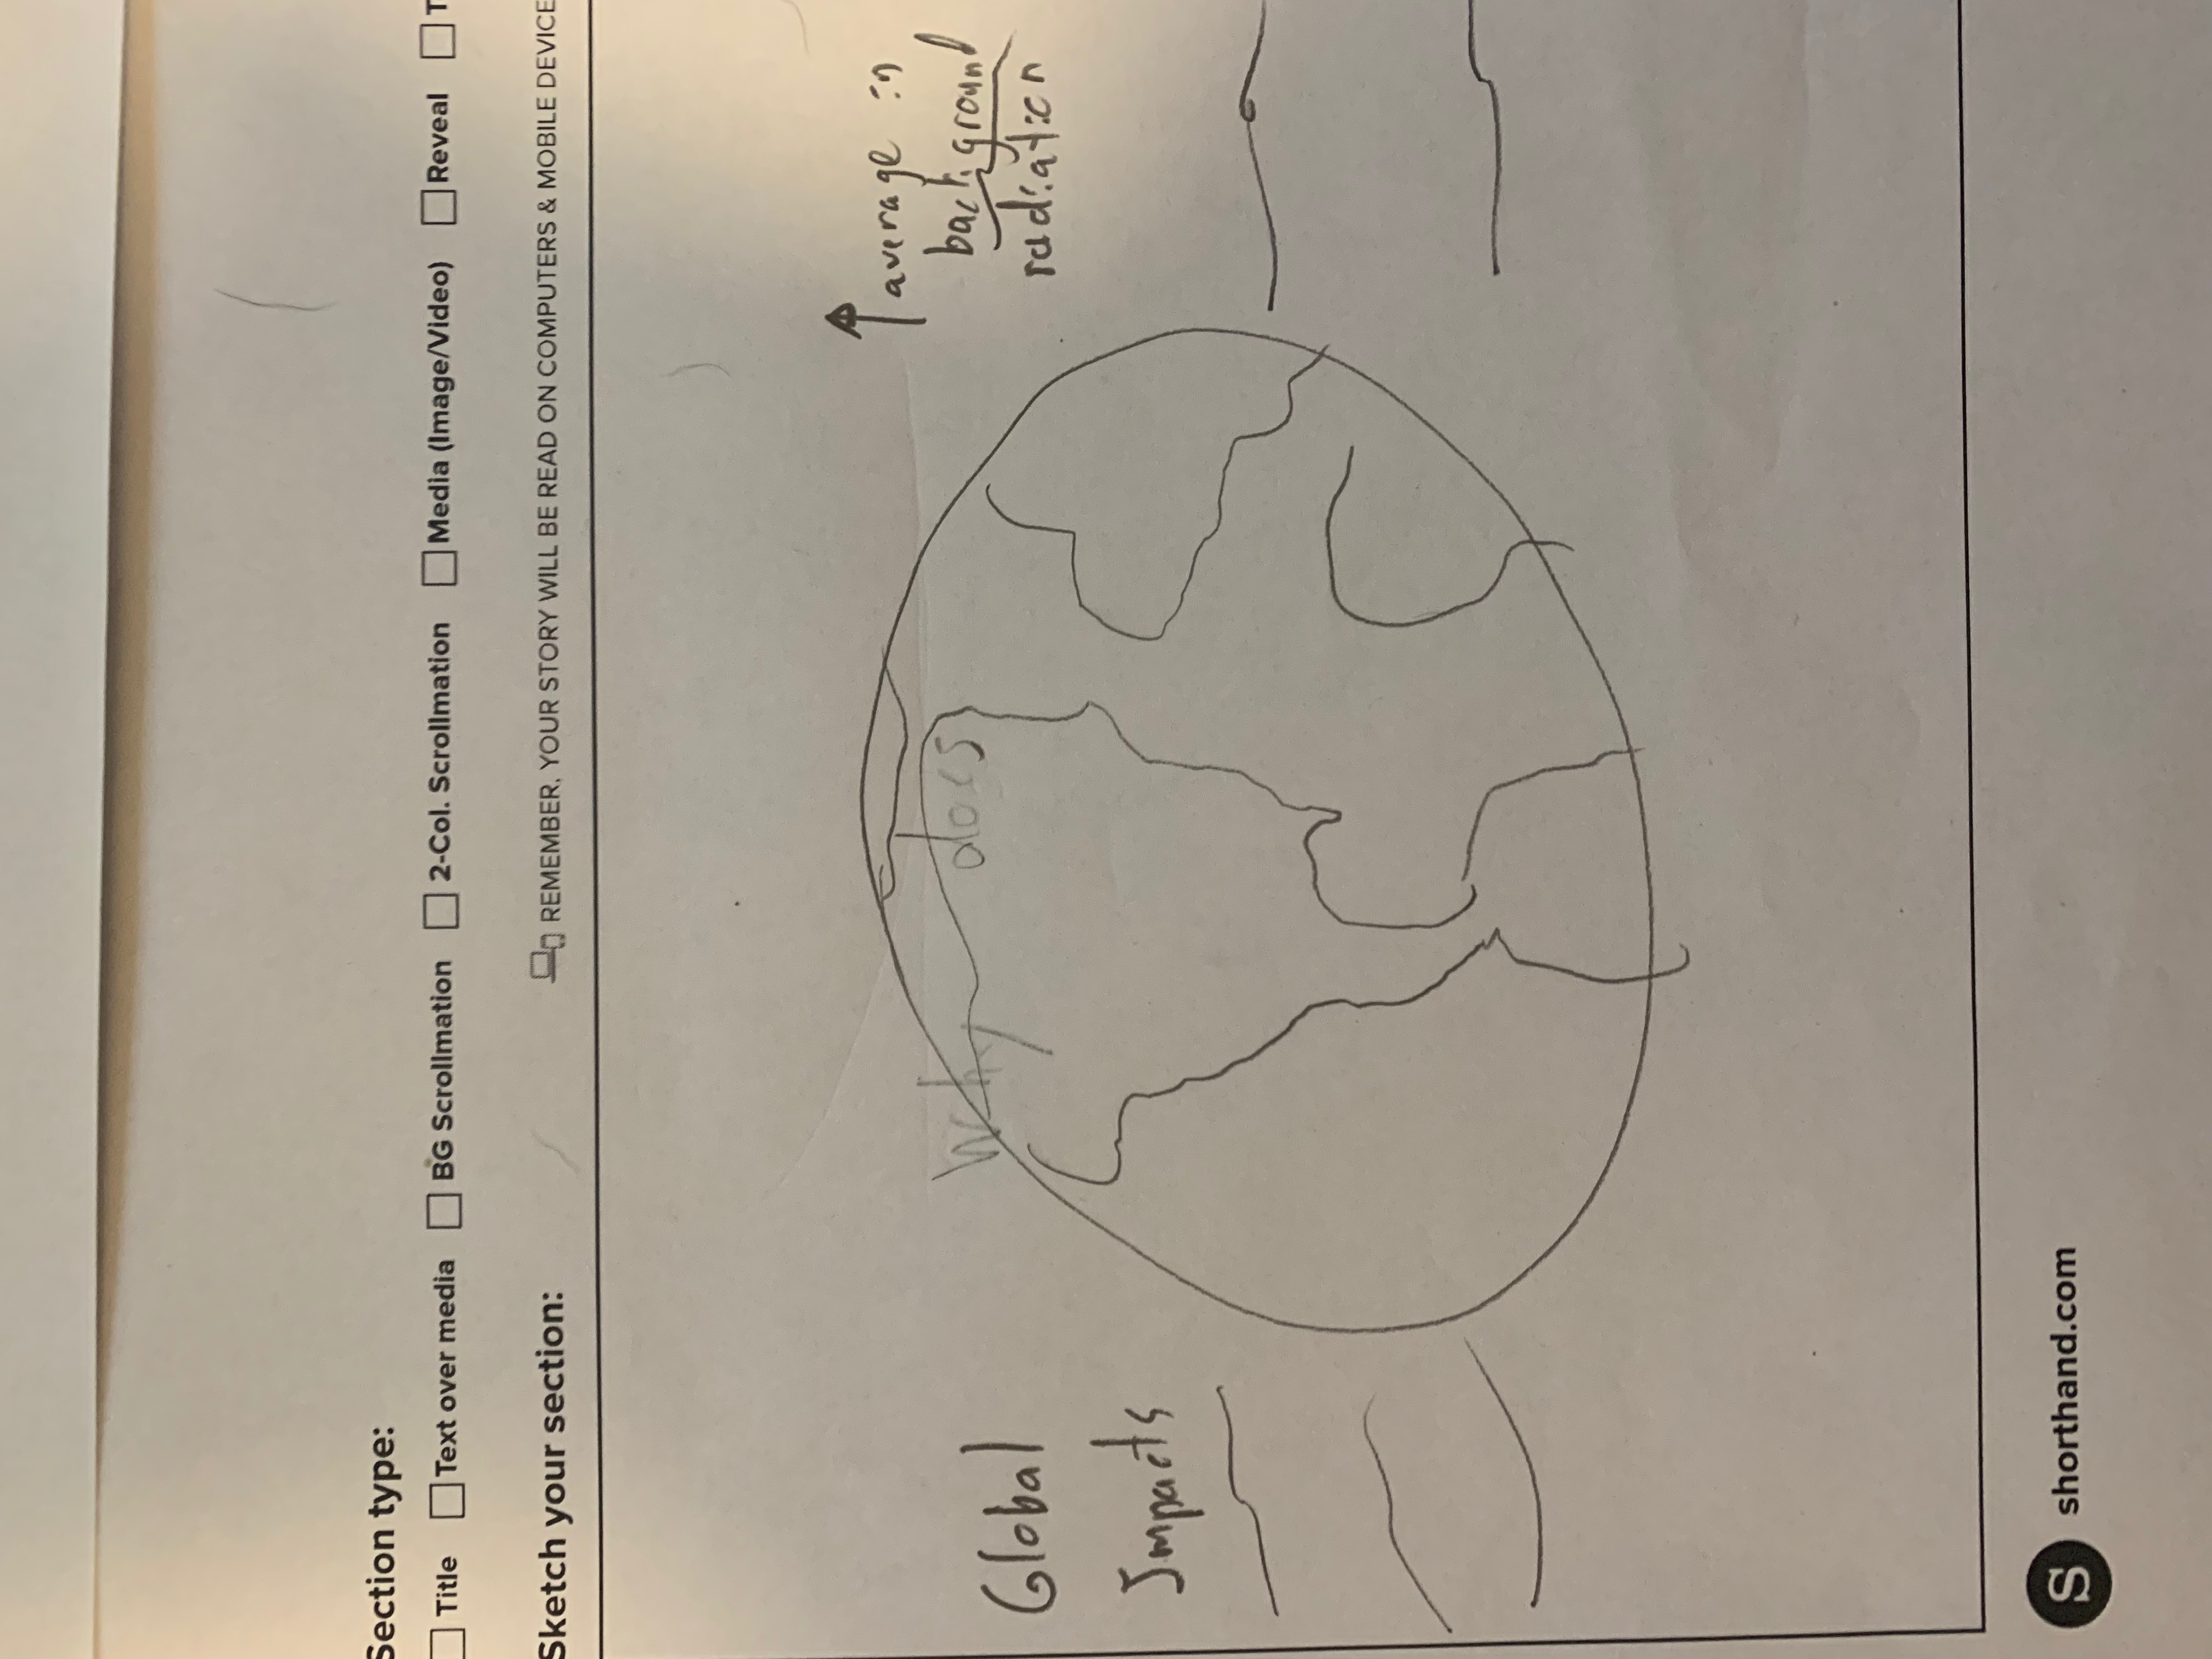 Section type:
Title Text over media BG Scrollmation 2-Col. Scrollmation Media (Image/Video) Reveal T
Sketch your section:
REMEMBER, YOUR STORY WILL BE READ ON COMPUTERS & MOBILE DEVICE
↑ average in
background
radiation
Why does
Global
Impacts
S shorthand.com